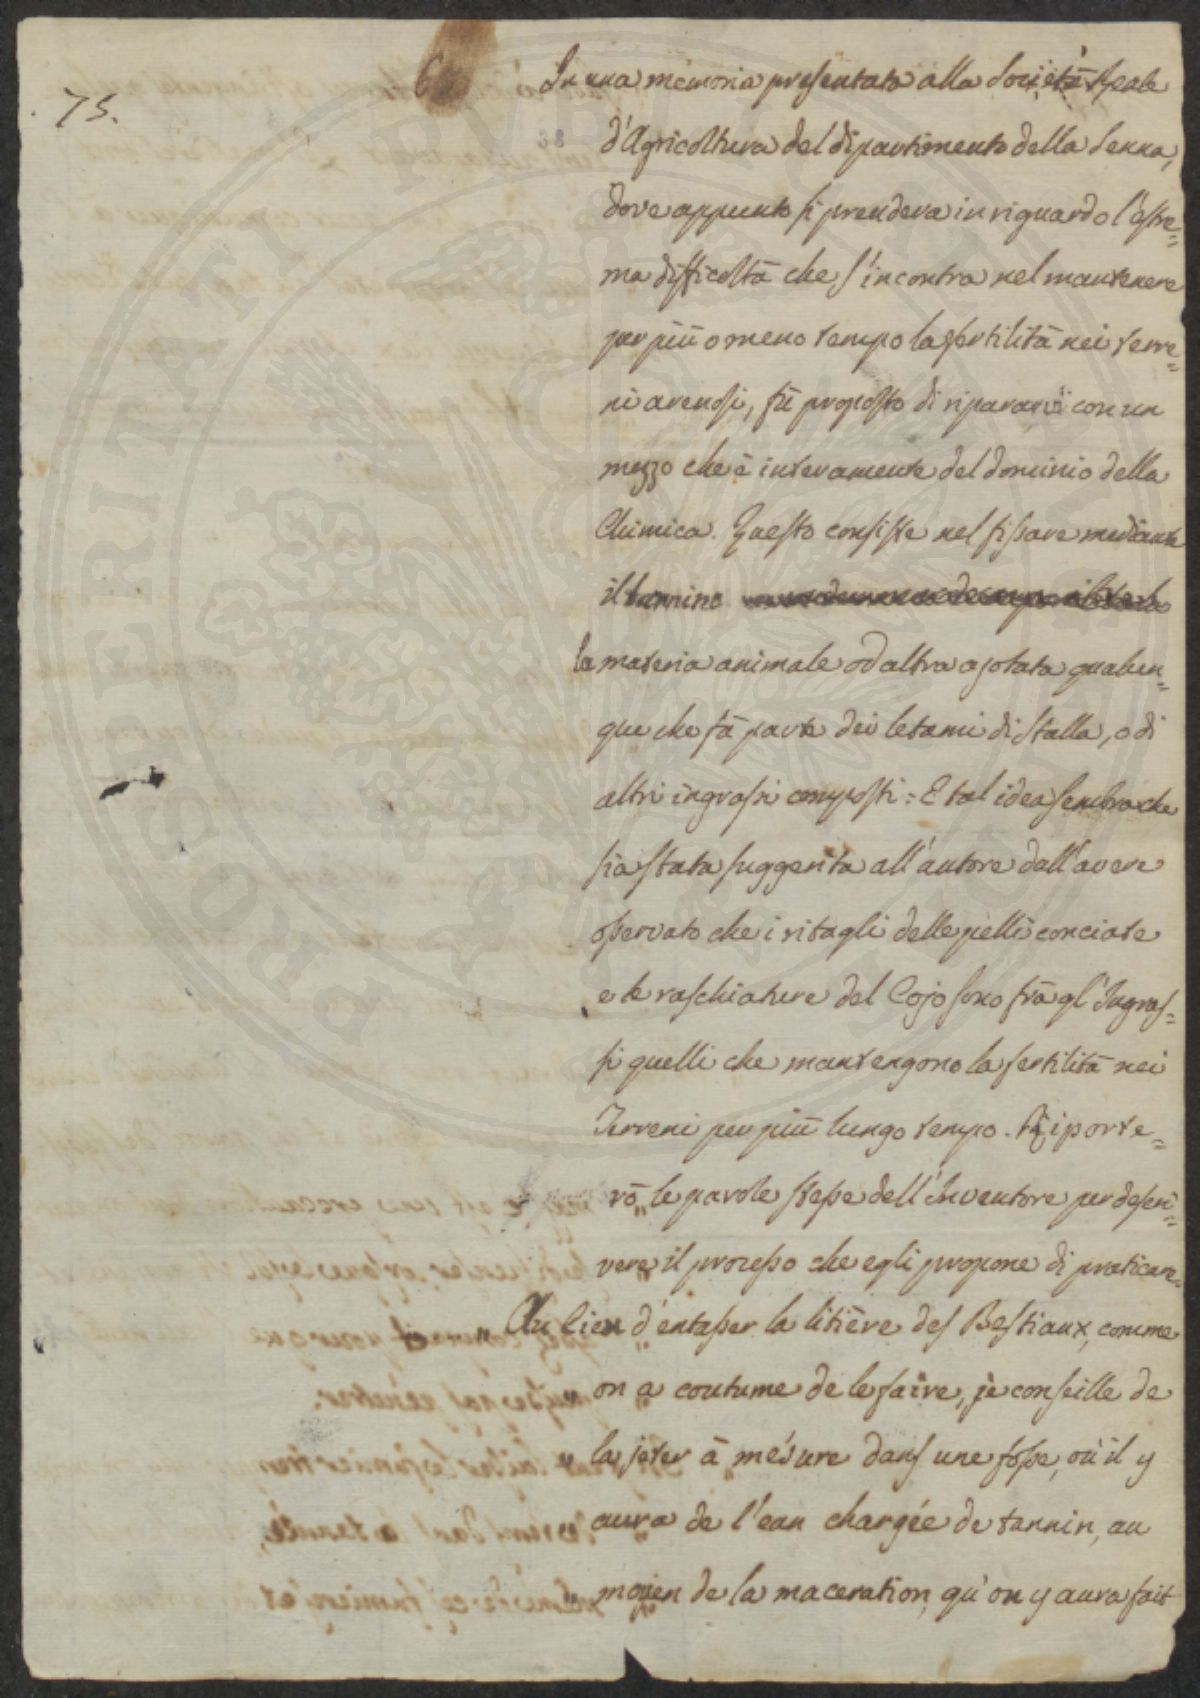 75.
In una memoria presentata alla Società Reale
d'Agricoltura del dipartimento della Senna,
dove appunto si prendeva in riguardo l'estre=
ma difficoltà che s'incontra nel mantenere
per più o meno tempo la fertilità nei terre=
ni arenosi, fù proposto di ripararvi con un
mezzo che è interamente del dominio della
Chimica. Questo consiste nel fissare mediante
il tannino
la materia animale od altra azotata qualun=
que che fà parte dei letami di stalla, o di
altri ingrassi composti: E tal idea sembra che
sia stata suggerita all'autore dall'avere
osservato che i ritagli delle pelli conciate
e le raschiature del Cojo sono frà gl'Ingras=
si quelli che mantengono la fertilità nei
Terreni per più lungo tempo. Riporte=
rò le parole stesse dell'Inventore per descri=
vere il processo che egli propone di praticare=
„ Au lieu d'entasser la litière des Bestiaux, comme
„ on a coutume de le faire, je conseille de
„ la jeter à mésure dans une fosse, où il y
„ aura de l'eau chargée de tannin, au
„ moyen de la maceration, qu'on y aura fait
PROSPERITATI PUBLICAE AUGENDAE